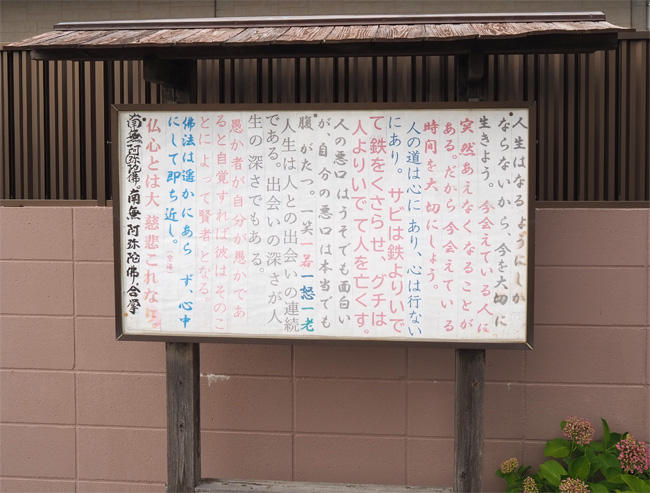 人生はなるようにしか
ならないから、今を大切に
生きよう。今会えている人に
突然あえなくなることが
ある。だから今会えている
時間を大切にしよう。
人の道は心にあり、心は行ない
にあり。サビは鉄よりいで
て鉄をくさらせ、グチは
人よりいでて人を亡くす。
人の悪口はうそでも面白い
が、自分の悪口は本当でも
腹がたつ。一笑一若一怒一老
人生は人との出会いの連続
である。出会いの深さが人
生の深さでもある。
愚か者が自分が愚かであ
ると自覚すれば彼はそのこ
とによって賢者となる。
佛法は遥かにあらず、心中
にして即ち近し。
仏心とは大慈悲これなり。
南無阿弥陀佛。南無阿弥陀佛、合掌